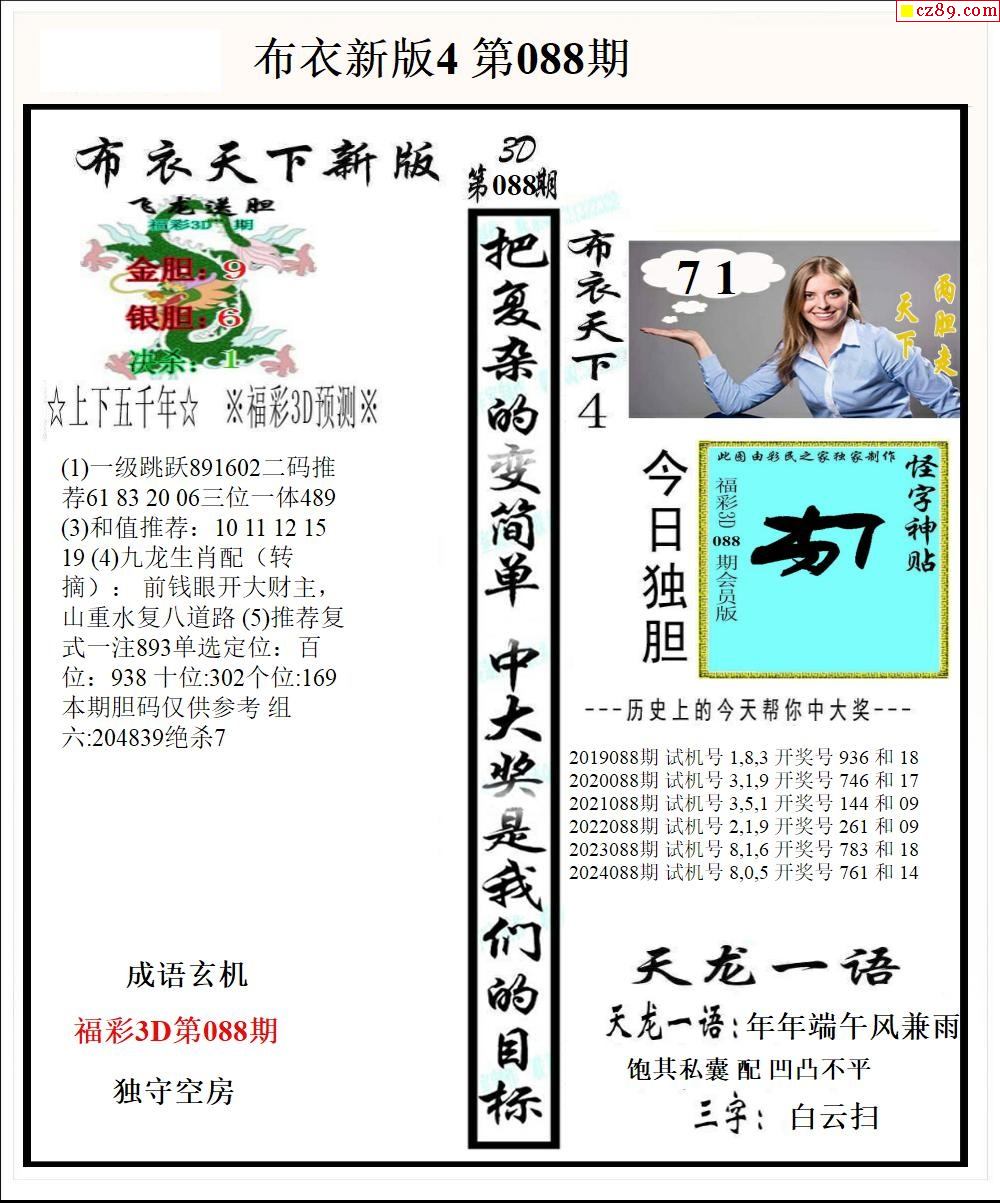 cz89.com
布衣新版4 第088期
布衣天下新版
飞龙送胆
福彩3D 期
金胆：9
银胆：6
决杀：1
☆上下五千年☆ ※福彩3D预测※
(1)一级跳跃891602二码推
荐61 83 20 06三位一体489
(3)和值推荐：10 11 12 15
19 (4)九龙生肖配（转
摘）： 前钱眼开大财主，
山重水复八道路 (5)推荐复
式一注893单选定位：百
位：938 十位:302个位:169
本期胆码仅供参考 组
六:204839绝杀7
成语玄机
福彩3D第088期
独守空房
3D
第088期
把复杂的变简单 中大奖是我们的目标
布衣天下4
7 1
两胆走
天下
今日独胆
此图由彩民之家独家制作
怪字神贴
福彩3D 088 期会员版
---历史上的今天帮你中大奖---
2019088期 试机号 1,8,3 开奖号 936 和 18
2020088期 试机号 3,1,9 开奖号 746 和 17
2021088期 试机号 3,5,1 开奖号 144 和 09
2022088期 试机号 2,1,9 开奖号 261 和 09
2023088期 试机号 8,1,6 开奖号 783 和 18
2024088期 试机号 8,0,5 开奖号 761 和 14
天龙一语
天龙一语：年年端午风兼雨
饱其私囊 配 凹凸不平
三字： 白云扫